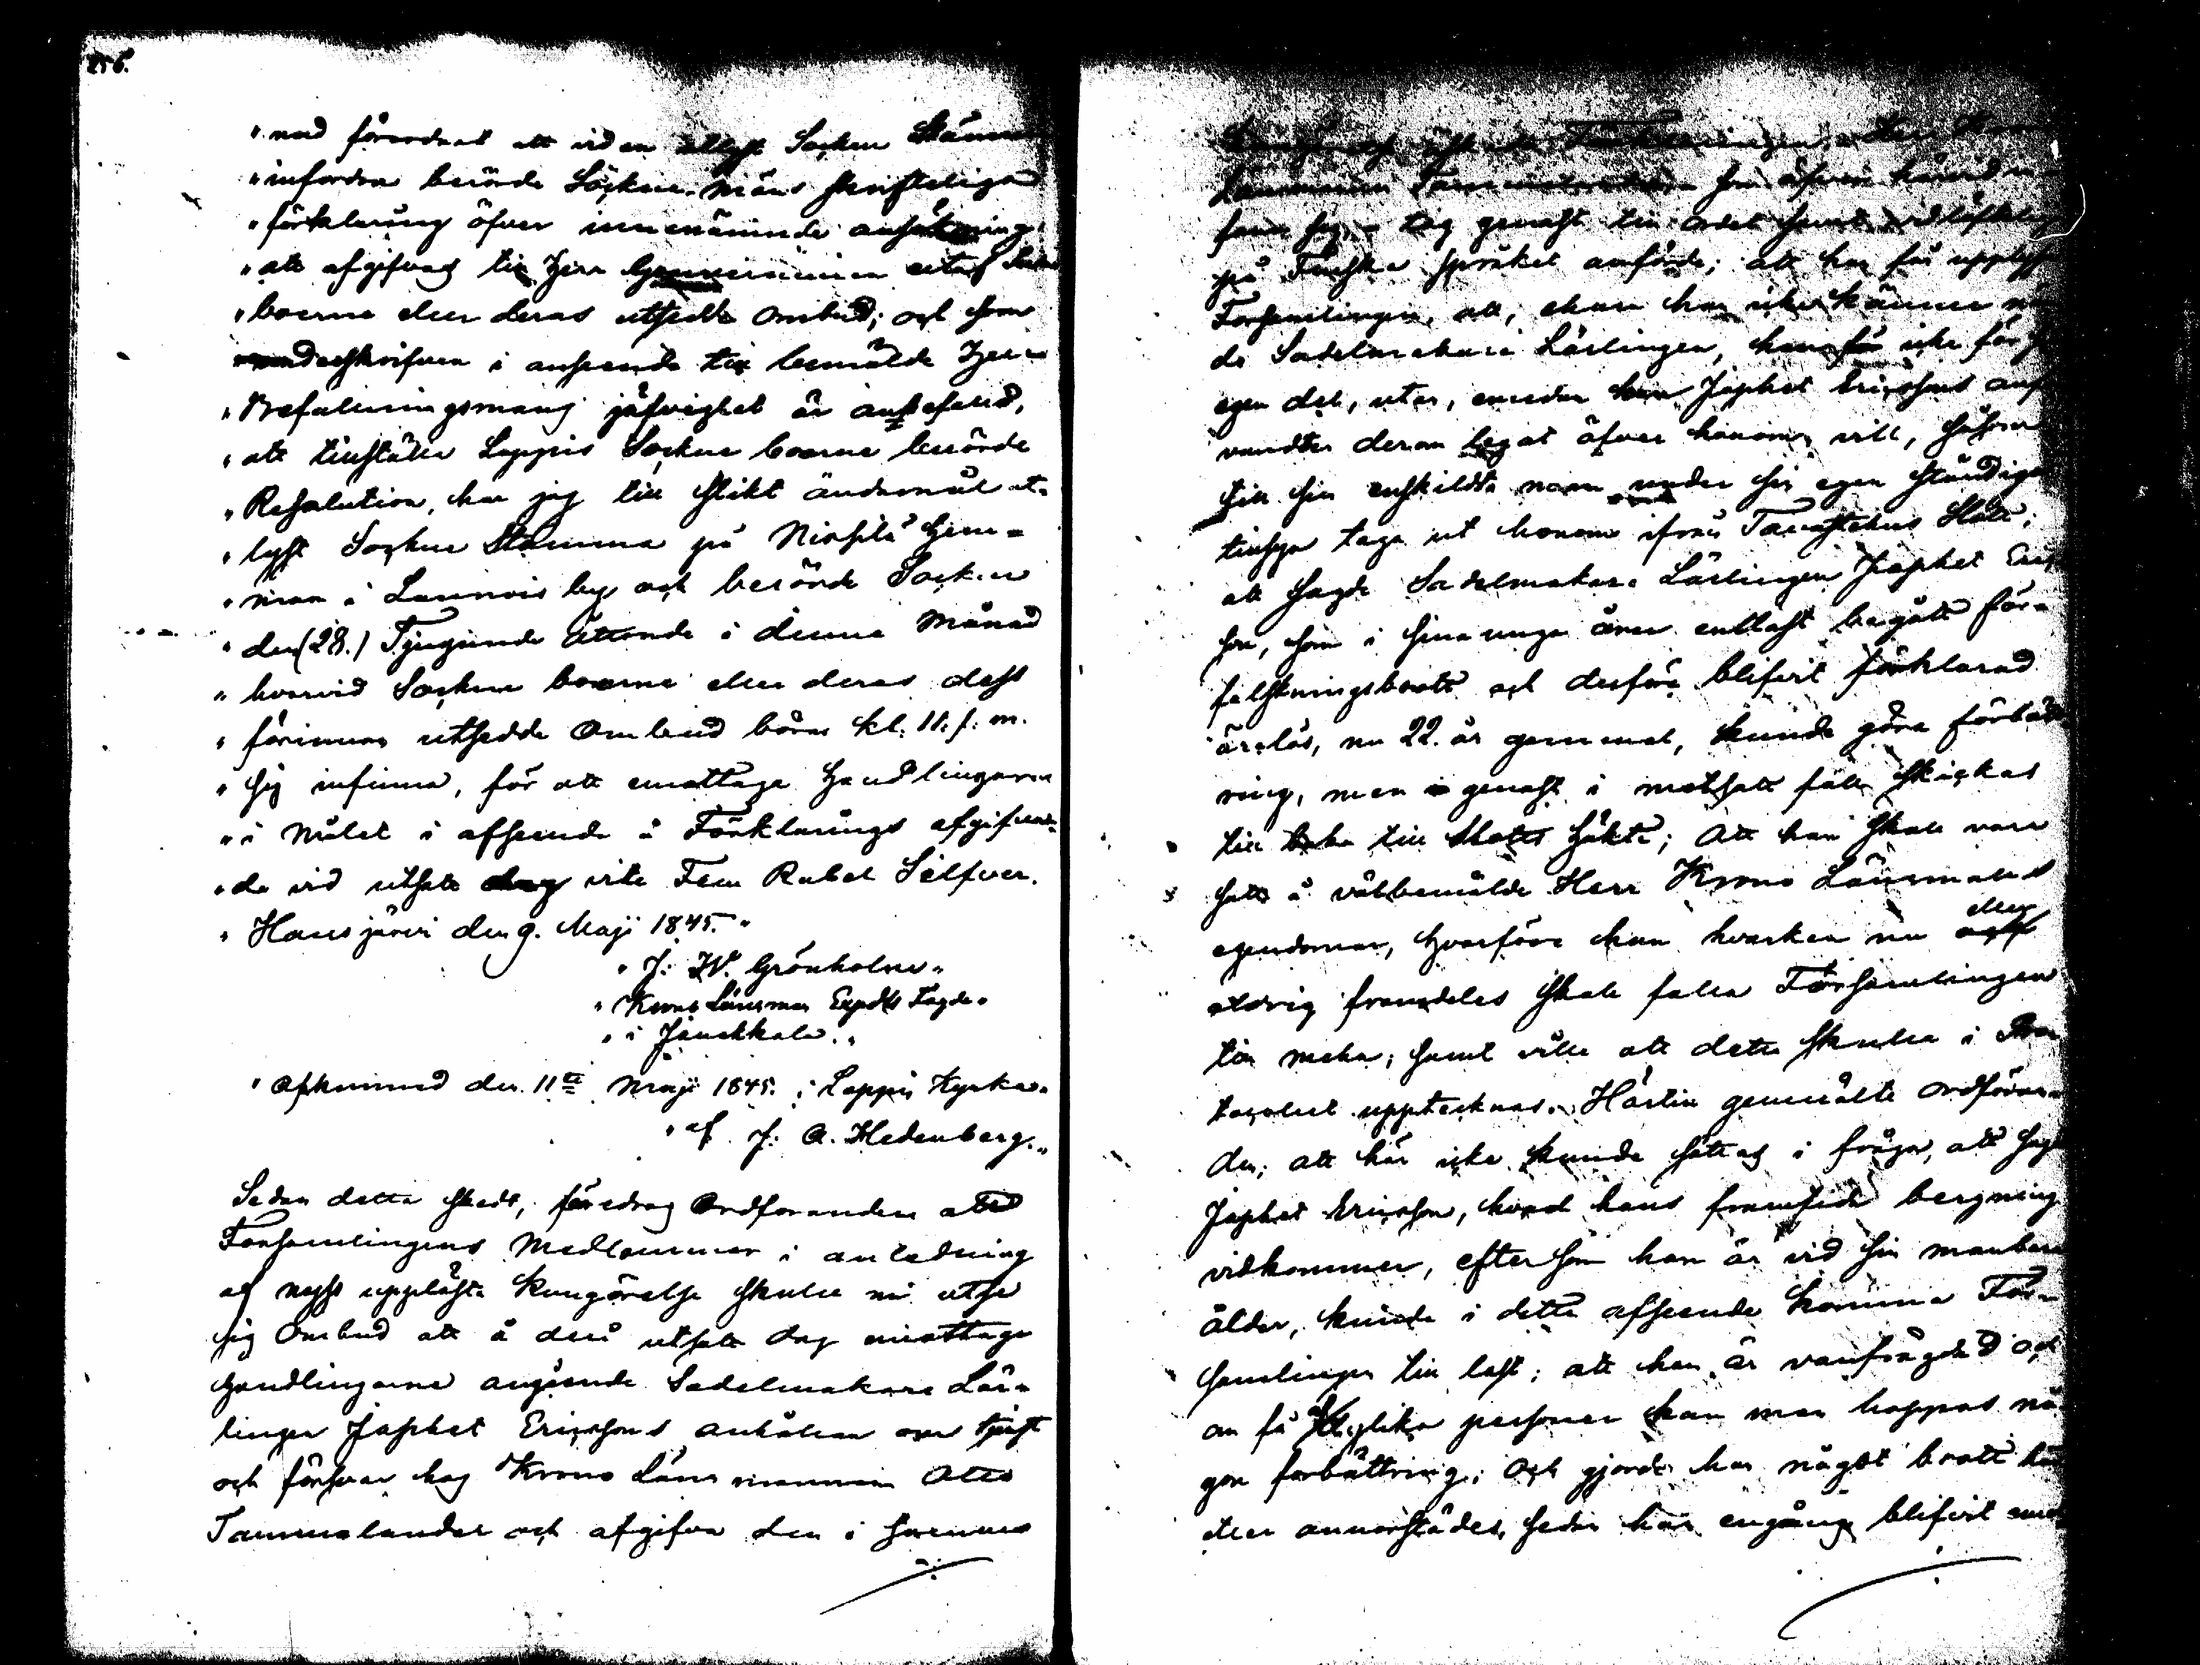 256.
" nad förordnat att vid en utlyst Socken Stämma
" infordra berörde Sockne-Mäns skrifteliga
" förklaring öfver innenämnde ansökning,
" att afgifvas till Herr Gouverneuren utaf Sockne
" boerne eller deras utsedde Ombud; och som
" underskrifven i anseende till bemälde Herr
" Befallningsmans jäfvighet är anbefalld,
" att tillställa Loppis Sockne boerne berörde
" Resolution, har jag till slikt ändamål ut-
" lyst Sockne Stämma på Nissilä Hem-
" man i Launois by och berörde Socken
" den (28.) Tjugunde Åttonde i denne Månad
" hvarvid Sockne boerne eller deras dess
" förinnan utsedde Ombud böra kl. 11. f. m.
" sig infinna, för att emottaga Handlingarne
" i målet i afseende å Förklarings afgifvan-
" de vid utsatt vite Fem Rubel Silfver.
" Hausjärvi den 9. Maji 1845. "
" J. W. Grönholm "
" Krono Länsman Expdts Fogde "
" i Janakkala. "
" Afkunnad den 11te Maji 1845. i Loppis Kyrka "
" af J. A. Hedenberg. "
Sedan detta skedt, föredrog Ordföranden att
Församlingens Medlemmar i anledning
af nyss uppläste Kungörelse skulle nu utse
sig Ombud att å deri utsatt dag emottaga
Handlingarne angående Sadelmakare Lär-
lingen Japhet Ericssons anhållan om tjenst
och försvar hos Krono Länsmannen Otto
Tammelander och afgifva den i
Förklaringen. Herr Krono
Länsmannen Tammelander som äfven härvid in-
fann sig, tog genast till ordet samt vidlöfteligen
på Finska språket anförde; att han får upplysa
Församlingen, att, ehuru han icke känner
de Sadelmakare Lärlingen, icke för
egen del, utan, emedan Japhet Ericssons anf
vandter derom legat öfver honom, vill, såsom
till sin enskildta man under sin egen ständiga
tillsyn taga ut honom ifrån Tavastehus Slott;
att sagde Sadelmakare Lärlingen Japhet Eric
son, som i sina unga åren endast begått för-
falskningsbrott och derföre blifvit förklarad
ärelös, nu 22. år gammal, kunde göra förbätt
ring, men genast i motsatt fall skickas
till baka till Slotts häkte; Att han skall vara
satt å välbemälde Herr Krono Länsmans
egendomar, hvarföre han hvarken nu eller
aldrig framdeles skall falla Församlingen
till mehn; samt ville att detta skulle i Pro
tocollet upptecknas. Härtill genmälte Ordföran
den; att här icke kunde sättas i fråga, att sagde
Japhet Ericsson, hvad hans framtida bergning
vidkommer, eftersom han är vid sin manbara
ålder, kunde i detta afseende komma För-
samlingen till last; att han är vanfrägdad och
om få slika personer kan man hoppas nå
gon förbättring; Och gjorde han något brott här
eller annorstädes, sedan han engång blifvit emot